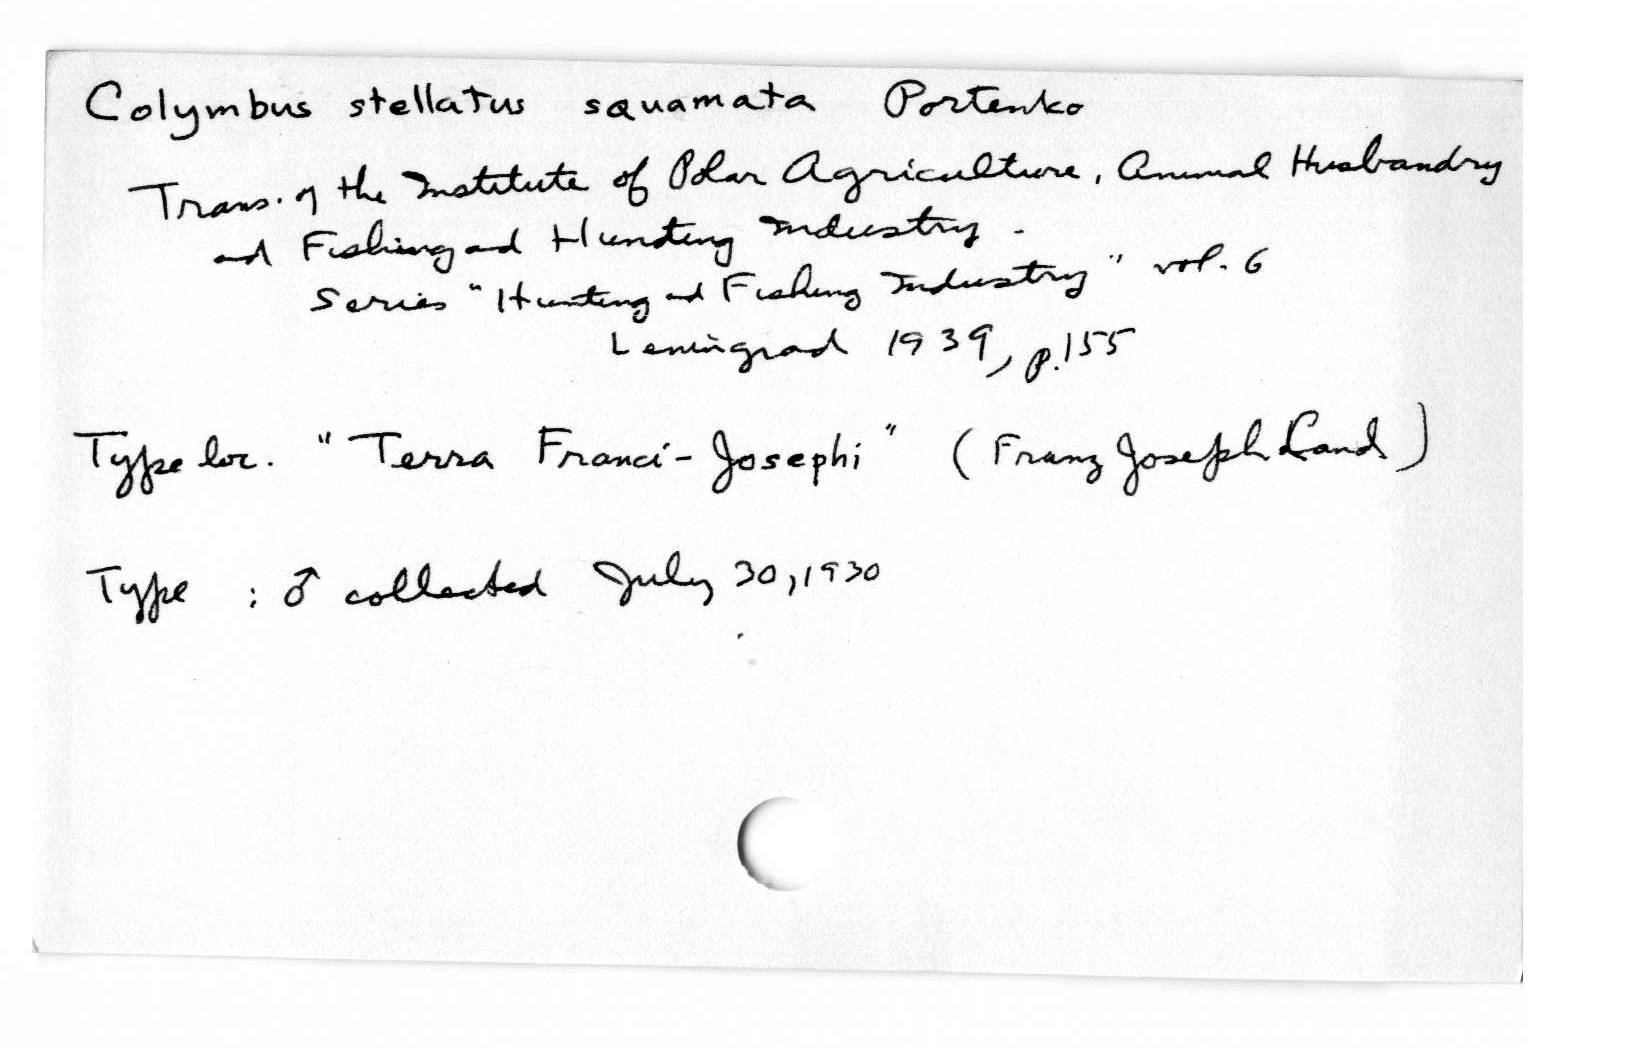 Colymbus stellatus squamata Portenko
Trans. of the Institute of Polar Agriculture, Animal Husbandry
and Fishing and Hunting Industry.
Series "Hunting and Fishing Industry" vol. 6
Leningrad 1939, p.155
Type loc. "Terra Franci-Josephi" (Franz Joseph Land)
Type : ♂ collected July 30, 1930